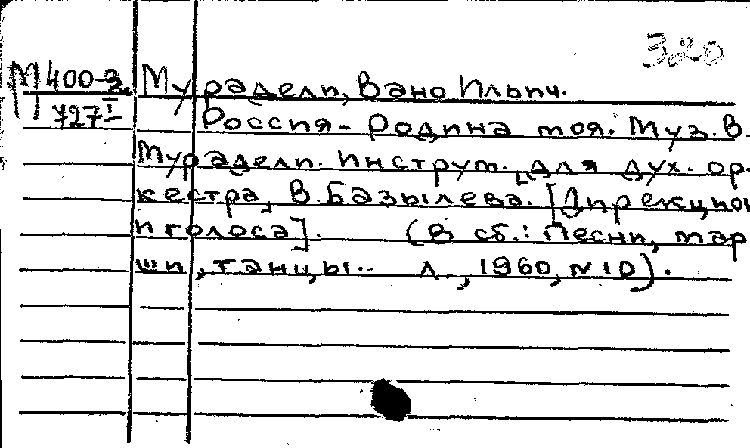 320
М400-3 Мурадели, Вано Ильич.
727 I Россия - Родина моя. Муз. В.
Мурадели. Инструм. для дух. ор-
кестра, В. Базылева. [Дирекцион
и голоса]. (В сб.: Песни, мар
ши, танцы.. Л., 1960, N 10).